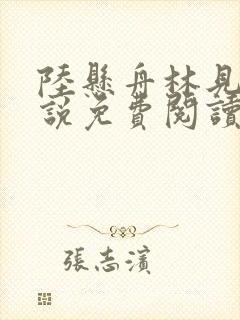 陸懸舟林見
說免費閱讀
張志濱